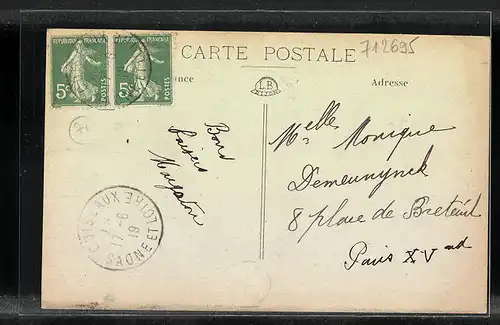 REPUBLIQUE FRANÇAISE
REPUBLIQUE FRANÇAISE
5c POSTES
5c POSTES
CARTE POSTALE
712695
Adresse
LB
Bons
baisers
Melle Monique
Demeunynck
8 place de Breteuil
Paris XV
CUISEAUX
17 -6
19
SAONE ET LOIRE